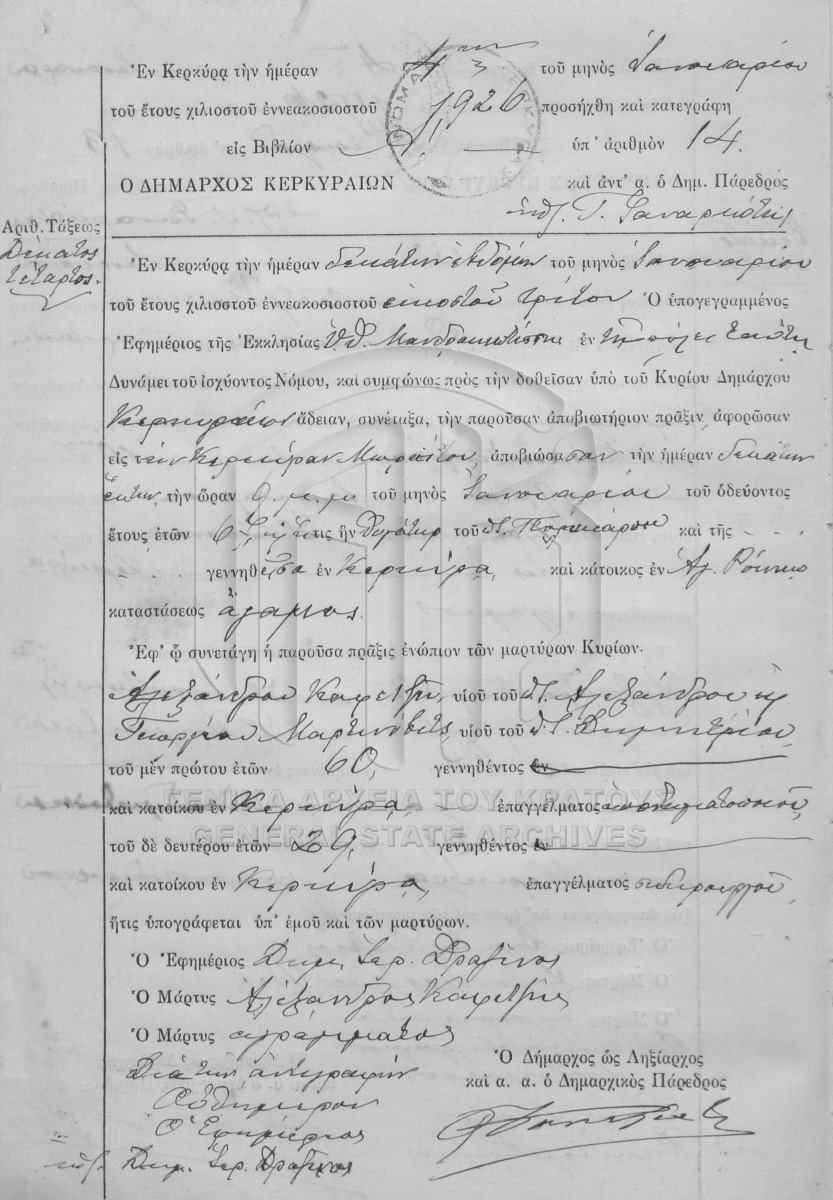 Ἐν Κερκύρᾳ τὴν ἡμέραν τοῦ μηνὸς Ἰανουαρίου
τοῦ ἔτους χιλιοστοῦ ἐννεακοσιοστοῦ 1926 προσήχθη καὶ κατεγράφη
εἰς Βιβλίον Α. ὑπ' ἀριθμὸν 14.
Ο ΔΗΜΑΡΧΟΣ ΚΕΡΚΥΡΑΙΩΝ καὶ ἀντ' α. ὁ Δημ. Πάρεδρος
Γ.
Ἀριθ. Τάξεως
Δέκατος
τέταρτος.
Ἐν Κερκύρᾳ τὴν ἡμέραν δεκάτην ἑβδόμην τοῦ μηνὸς Ἰανουαρίου
τοῦ ἔτους χιλιοστοῦ ἐννεακοσιοστοῦ εἰκοστοῦ τρίτου Ὁ ὑπογεγραμμένος
Ἐφημέριος τῆς Ἐκκλησίας Μανδρακιωτίσσης ἐν τῇ πόλει ταύτῃ
Δυνάμει τοῦ ἰσχύοντος Νόμου, καὶ συμφώνως πρὸς τὴν δοθεῖσαν ὑπὸ τοῦ Κυρίου Δημάρχου
Κερκυραίων ἄδειαν, συνέταξα, τὴν παροῦσαν ἀποβιωτήριον πρᾶξιν ἀφορῶσαν
εἰς τὴν Μωραΐτου, ἀποβιώσασαν τὴν ἡμέραν δεκάτην
ἕκτην τὴν ὥραν 9 μ.μ. τοῦ μηνὸς Ἰανουαρίου τοῦ ὁδεύοντος
ἔτους ἐτῶν ἥτις ἦν θυγάτηρ τοῦ π. Πολυκάρπου καὶ τῆς - -
γεννηθεῖσα ἐν Κερκύρᾳ, καὶ κάτοικος ἐν Ἁγ. Ρόκκῳ
καταστάσεως ἄγαμος.
Ἐφ' ᾧ συνετάγη ἡ παροῦσα πρᾶξις ἐνώπιον τῶν μαρτύρων Κυρίων.
Ἀλεξάνδρου Καφετζῆ, υἱοῦ τοῦ π. Ἀλεξάνδρου κ
Γεωργίου Μαρτινόβιτς, υἱοῦ τοῦ π. Δημητρίου,
τοῦ μὲν πρώτου ἐτῶν 60, γεννηθέντος ἐν
καὶ κατοίκου ἐν Κερκύρᾳ, ἐπαγγέλματος ὑποδηματοποιοῦ,
τοῦ δὲ δευτέρου ἐτῶν 29, γεννηθέντος ἐν
καὶ κατοίκου ἐν Κερκύρᾳ, ἐπαγγέλματος σιδηρουργοῦ,
ἥτις ὑπογράφεται ὑπ' ἐμοῦ καὶ τῶν μαρτύρων.
Ὁ Ἐφημέριος Δημ. Ἱερ. Δραζῖνος
Ὁ Μάρτυς Ἀλέξανδρος Καφετζῆς
Ὁ Μάρτυς ἀγράμματος
Διὰ τὴν ἀντιγραφήν
Αὐθήμερον
Ὁ Ἐφημέριος
Δημ. Ἱερ. Δραζῖνος
Ὁ Δήμαρχος ὡς Ληξίαρχος
καὶ α. α. ὁ Δημαρχικὸς Πάρεδρος
ΓΕΝΙΚΑ ΑΡΧΕΙΑ ΤΟΥ ΚΡΑΤΟΥΣ
GENERAL STATE ARCHIVES